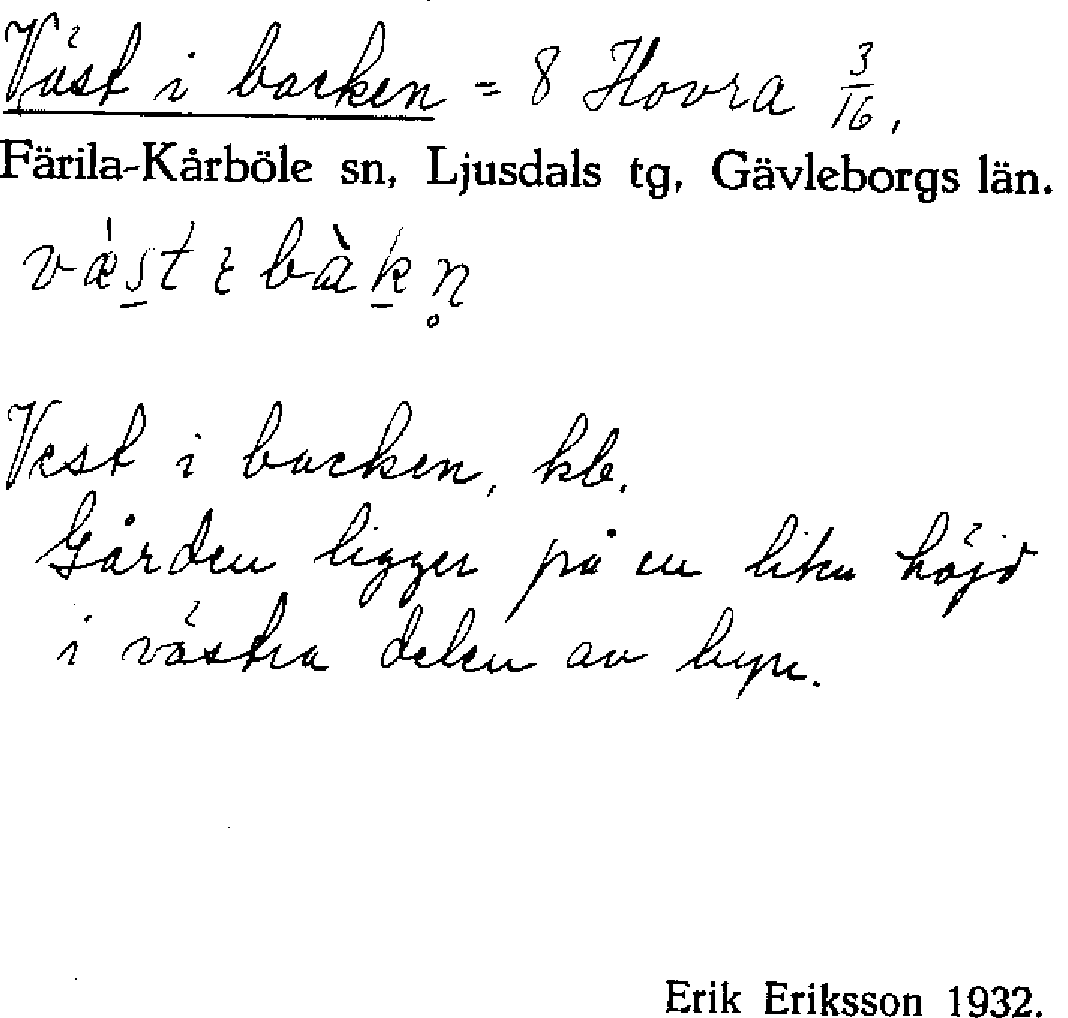 Väst i backen = 8 Hovra 3/16,
Färila-Kårböle sn, Ljusdals tg, Gävleborgs län.
væ̀s̲t ɩ bàk̲n̥
Vest i backen, kb.
Gården ligger på en liten höjd
i västra delen av byn.
Erik Eriksson 1932.